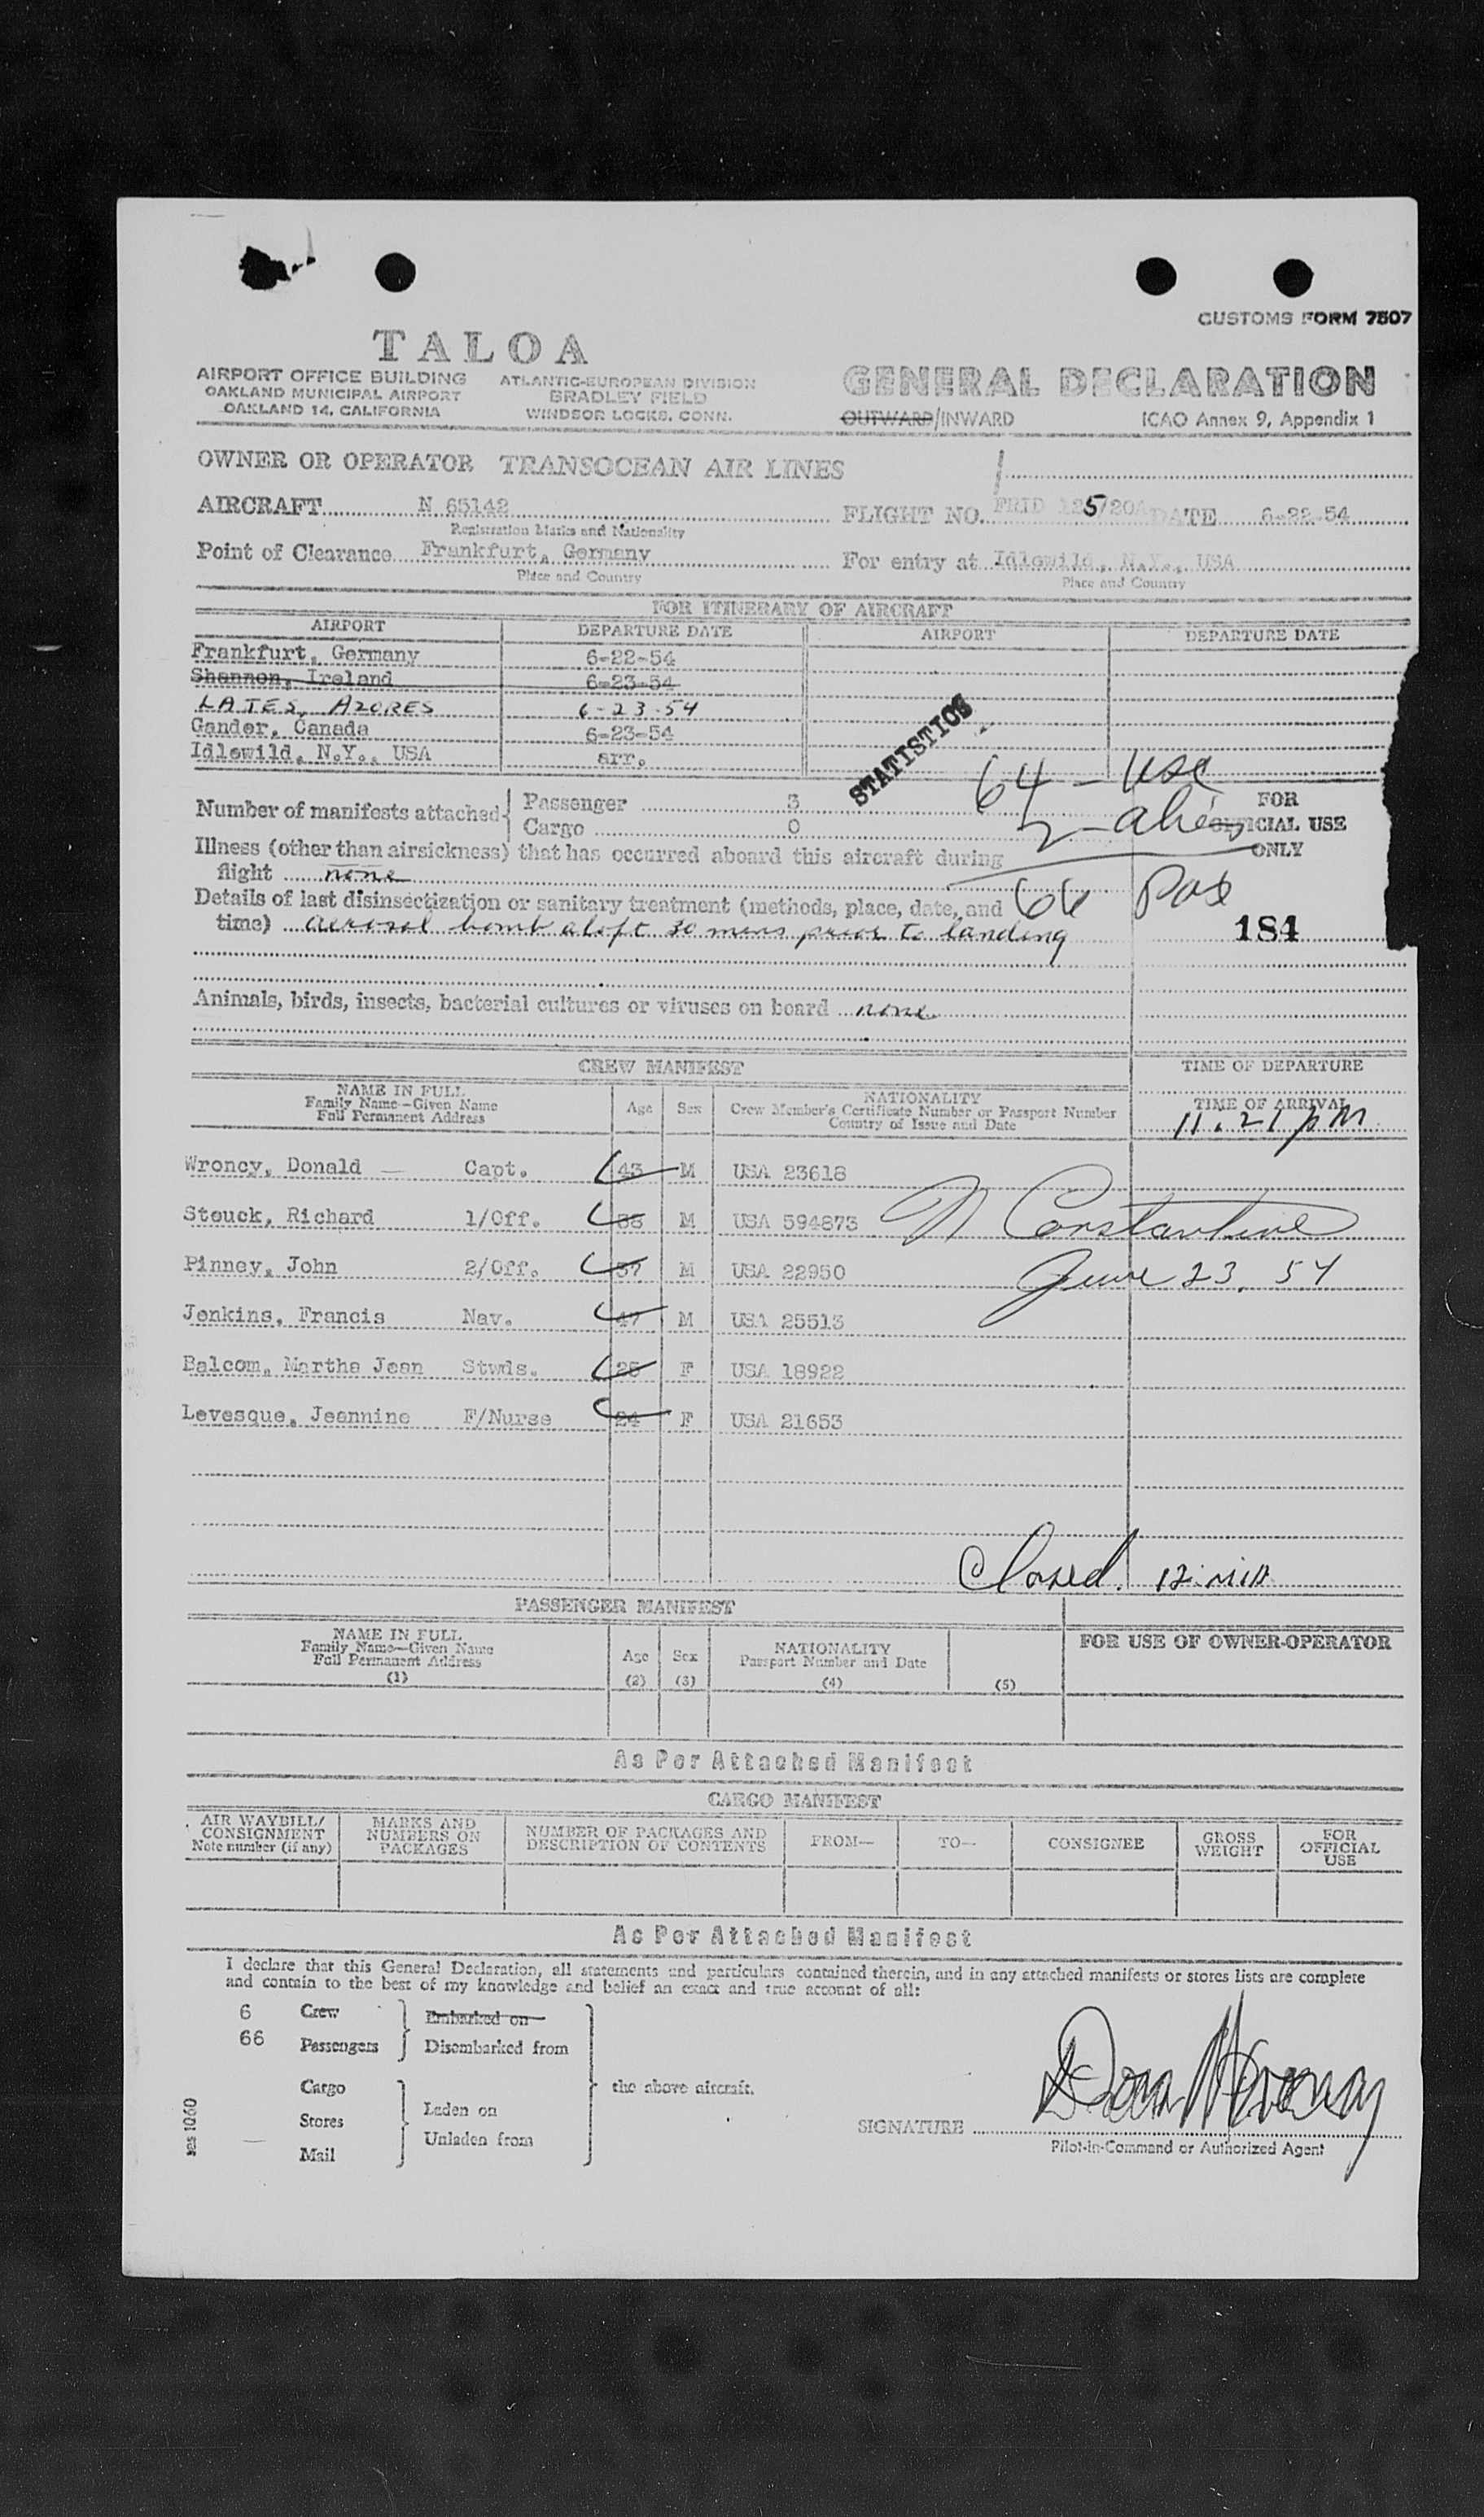 CUSTOMS FORM 7507
TALOA
AIRPORT OFFICE BUILDING
OAKLAND MUNICIPAL AIRPORT
OAKLAND 14, CALIFORNIA
ATLANTIC-EUROPEAN DIVISION
BRADLEY FIELD
WINDSOR LOCKS, CONN.
GENERAL DECLARATION
OUTWARD/INWARD ICAO Annex 9, Appendix 1
OWNER OR OPERATOR TRANSOCEAN AIR LINES
AIRCRAFT N 65142 FLIGHT NO. FRID 125/20A DATE 6-22-54
Registration Marks and Nationality
Point of Clearance Frankfurt, Germany For entry at Idlewild, N.Y., USA
Place and Country Place and Country
FOR ITINERARY OF AIRCRAFT
AIRPORT DEPARTURE DATE AIRPORT DEPARTURE DATE
Frankfurt, Germany 6-22-54
Shannon, Ireland 6-23-54
LAJES, AZORES 6-23-54
Gander, Canada 6-23-54
Idlewild, N.Y., USA arr.
STATISTICS
64 - usc
2 - alien
66 Pax
Number of manifests attached Passenger 3
Cargo 0
FOR
OFFICIAL USE
ONLY
Illness (other than airsickness) that has occurred aboard this aircraft during
flight none
Details of last disinsectization or sanitary treatment (methods, place, date, and
time) aerosol bomb aloft 30 mins prior to landing
184
Animals, birds, insects, bacterial cultures or viruses on board none
CREW MANIFEST
TIME OF DEPARTURE
NAME IN FULL
Family Name—Given Name
Full Permanent Address
Age Sex
NATIONALITY
Crew Member's Certificate Number or Passport Number
Country of Issue and Date
TIME OF ARRIVAL
11.21 PM
Wroncy, Donald Capt. 43 M USA 23618
Stouck, Richard 1/Off. 38 M USA 594873
N Constantine
Pinney, John 2/Off. 37 M USA 22950
June 23, 54
Jenkins, Francis Nav. 47 M USA 25513
Balcom, Martha Jean Stwds. 25 F USA 18922
Levesque, Jeannine F/Nurse 24 F USA 21653
Closed. 12 mid
PASSENGER MANIFEST
NAME IN FULL
Family Name—Given Name
Full Permanent Address
(1)
Age
(2)
Sex
(3)
NATIONALITY
Passport Number and Date
(4)
(5)
FOR USE OF OWNER-OPERATOR
As Per Attached Manifest
CARGO MANIFEST
AIR WAYBILL/
CONSIGNMENT
Note number (if any)
MARKS AND
NUMBERS ON
PACKAGES
NUMBER OF PACKAGES AND
DESCRIPTION OF CONTENTS
FROM—
TO—
CONSIGNEE
GROSS
WEIGHT
FOR
OFFICIAL
USE
As Per Attached Manifest
I declare that this General Declaration, all statements and particulars contained therein, and in any attached manifests or stores lists are complete
and contain to the best of my knowledge and belief an exact and true account of all:
6 Crew Embarked on
66 Passengers Disembarked from
Cargo the above aircraft.
Stores Laden on
Unladen from
— Mail
SIGNATURE
Pilot-in-Command or Authorized Agent